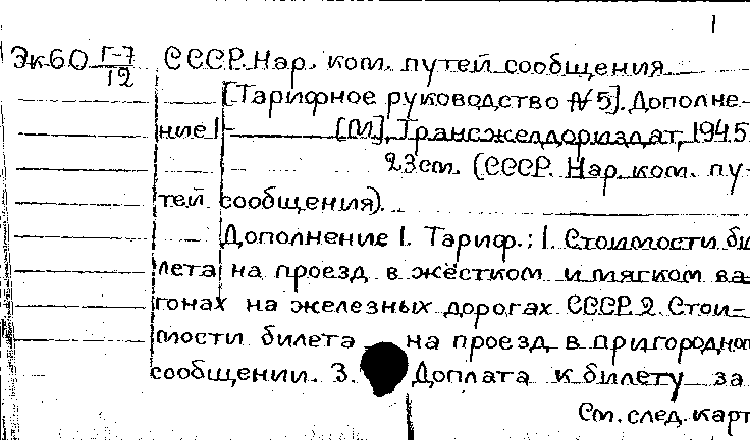 1
Эк60 Г-7/12 СССР. Нар. ком. путей сообщения
[Тарифное руководство №5]. Дополне-
ние 1- [М], Трансжелдориздат, 1945
23см. (СССР. Нар. ком. пу-
тей сообщения).
Дополнение 1. Тариф.: 1. Стоимости би
лета на проезд в жёстком и мягком ва-
гонах на железных дорогах СССР. 2. Стои-
мости билета на проезд в пригородном
сообщении. 3. Доплата к билету за
См. след. карт